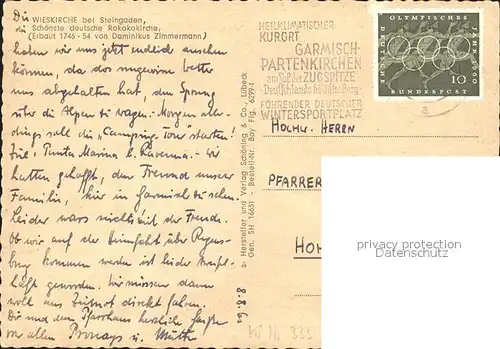 Die WIESKIRCHE bei Steingaden,
die Schönste deutsche Rokokokirche,
(Erbaut 1746 - 54 von Dominikus Zimmermann)
haben wir uns jetzt endlich ansehen
können, da das ungewisse Wetter
uns abgehalten hat, den Sprung
über die Alpen zu wagen. - Morgen aller-
dings soll die „Camping Tour" starten!
Ziel: Punta Marina b. Ravenna. - Wir
hatten gehofft, den Freund unserer
Familie, hier in Garmisch zu sehen.
Leider wars nichts mit der Freude.
Ob wir auf der Heimfahrt über Regens-
burg kommen werden ist leider zweifel-
haft geworden. Wir müssen dann
wohl aus Zeitnot direkt fahren.
Dir und dem Pfarrhaus herzliche Grüße
von allen
8.8.60
s- Hersteller und Verlag Schöning & Co., Lübeck
Gen. SHl 16631 - Bestell-Nr. Bay. Flg. 6299/1
HEILKLIMATISCHER
KURORT
GARMISCH-
PARTENKIRCHEN
am Fuß der ZUGSPITZE
-Deutschlands höchster Berg-
FÜHRENDER DEUTSCHER
WINTERSPORTPLATZ
OLYMPISCHES
JAHR 1960
10
DEUTSCHE
BUNDESPOST
a
HOCHW. HERRN
PFARRER
HO
privacy protection
Datenschutz